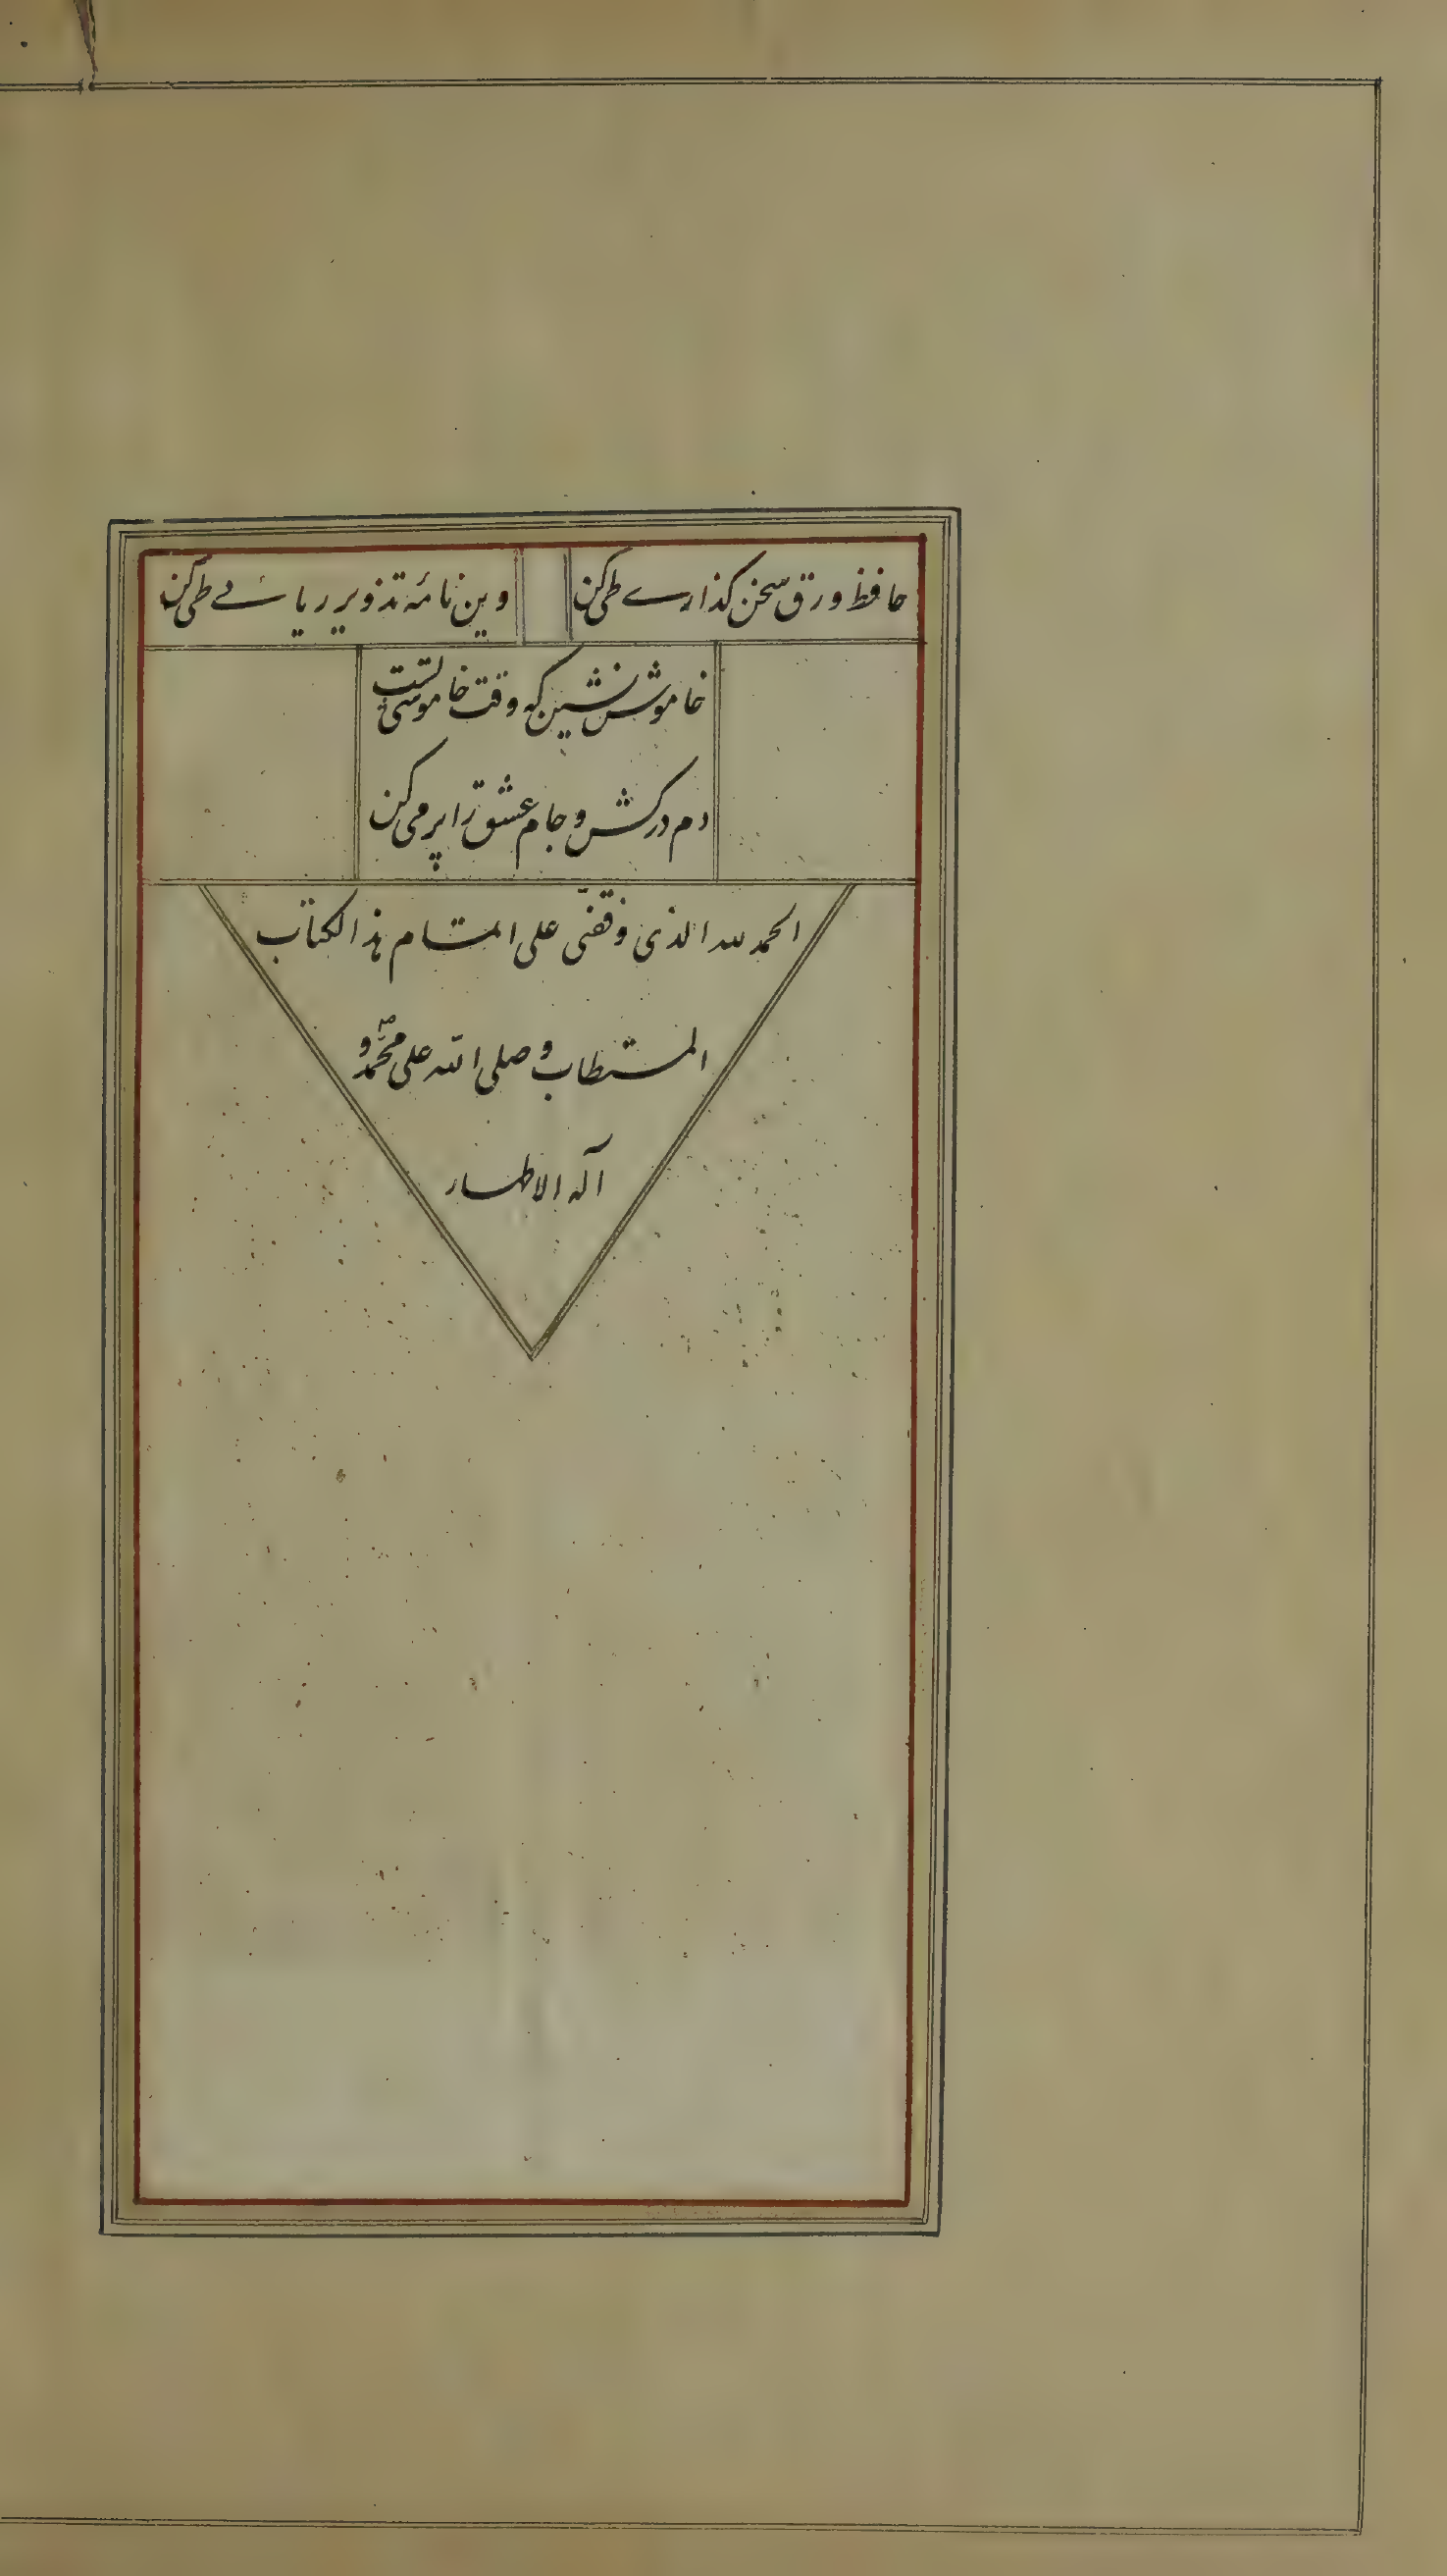 حافظ ورق سخن گذارے طی کن
وین نامهٔ تذویر ریائے طی کن
خاموش نشین که وقت خاموشیست
دم درکش و جام عشق را پر می کن
الحمد لله الذی وفقنی علی التمام هذا الکتاب
المستطاب و صلی الله علی محمد و
آله الاطهار